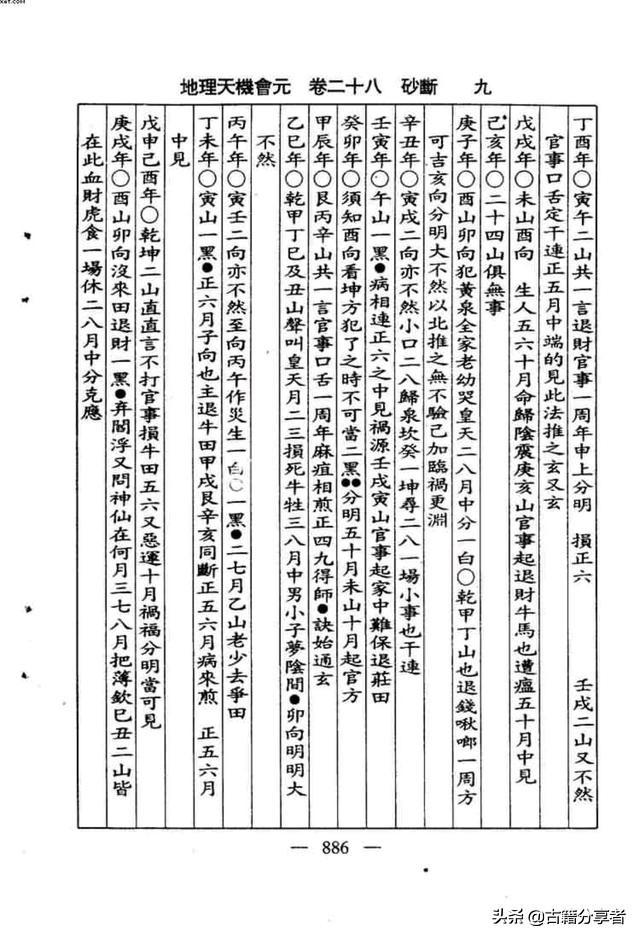 xet.com
地理天機會元　卷二十八　砂斷　九
丁酉年○寅午二山共一言退財官事一周年申上分明　損正六　壬戌二山又不然
官事口舌定干連正五月中端的見此法推之玄又玄
戊戌年○未山酉向　生人五六十月命歸陰震庚亥山官事起退財牛馬也遭瘟五十月中見
己亥年○二十四山俱無事
庚子年○酉山卯向犯黃泉全家老幼哭皇天二八月中分一白○乾甲丁山也退錢啾唧一周方
可吉亥向分明大不然以北推之無不驗已加臨禍更淵
辛丑年○寅戌二向亦不然小口二八歸泉坎癸一坤尋二八一場小事也干連
壬寅年○午山一黑●病相連正六之中見禍源壬戌寅山官事起家中難保退莊田
癸卯年○須知酉向看坤方犯了之時不可當二黑●●分明五十月未山十月起官方
甲辰年○艮丙辛山共一言官事口舌一周年麻疽相煎正四九得師●訣始通玄
乙巳年○乾甲丁巳及丑山聲叫皇天月二三損死牛牲三八月中男小子夢陰間●卯向明明大
不然
丙午年○寅壬二向亦不然至向丙午作災生一白○一黑●二七月乙山老少去爭田
丁未年○寅山一黑●正六月子向也主退牛田甲戌艮辛亥同斷正五六月病來煎　正五六月
中見
戊申己酉年○乾坤二山直直言不打官事損牛田五六又惡運十月禍福分明當可見
庚戌年○酉山卯向沒來田退財一黑●弃閻浮又問神仙在何月三七八月把薄欽巳丑二山皆
在此血財虎食一場休二八月中分克應
— 886 —
头条 @古籍分享者